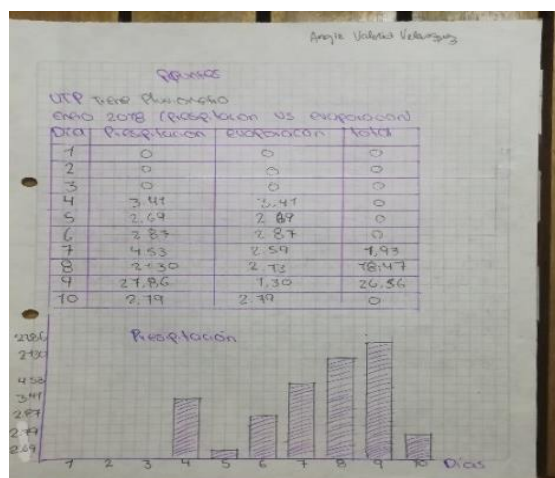 Angie Valeria Velasquez
Apuntes
UTP Tiene Pluviometro
enero 2018 (Presipitacion VS evaporacion)
Dia Presipitacion evaporacion total
1 0 0 0
2 0 0 0
3 0 0 0
4 3.41 3.41 0
5 2.69 2.69 0
6 2.87 2.87 0
7 4.53 2.59 1,93
8 2.73 18.47
9 27.86 1.30 26.56
10 2.79 2.79 0
Presipitación
27.86
4.53
3.41
2.87
2.79
2.69
1 2 3 4 5 6 7 8 9 10 Dias